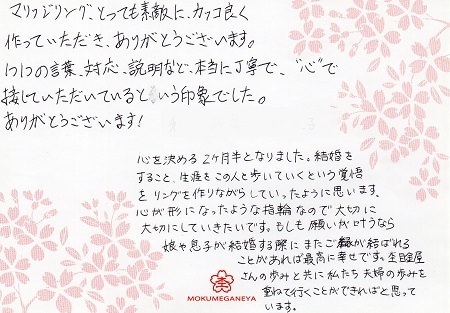 マリッジリング、とっても素敵に、カッコ良く
作っていただき、ありがとうございます。
1つ1つの言葉、対応、説明など、本当に丁寧で、"心"で
接していただいているという印象でした。
ありがとうございます!
心を決める2ヶ月半となりました。結婚を
すること、生涯をこの人と歩いていくという覚悟
をリングを作りながらしていったように思います。
心が形になったような指輪なので大切に
大切にしていきたいです。もしも願いが叶うなら
娘や息子が結婚する際にまたご縁が結ばれる
ことがあれば最高に幸せです。杢目屋
さんの歩みと共に私たち夫婦の歩みを
重ねて行くことができればと思って
います。
MOKUMEGANEYA